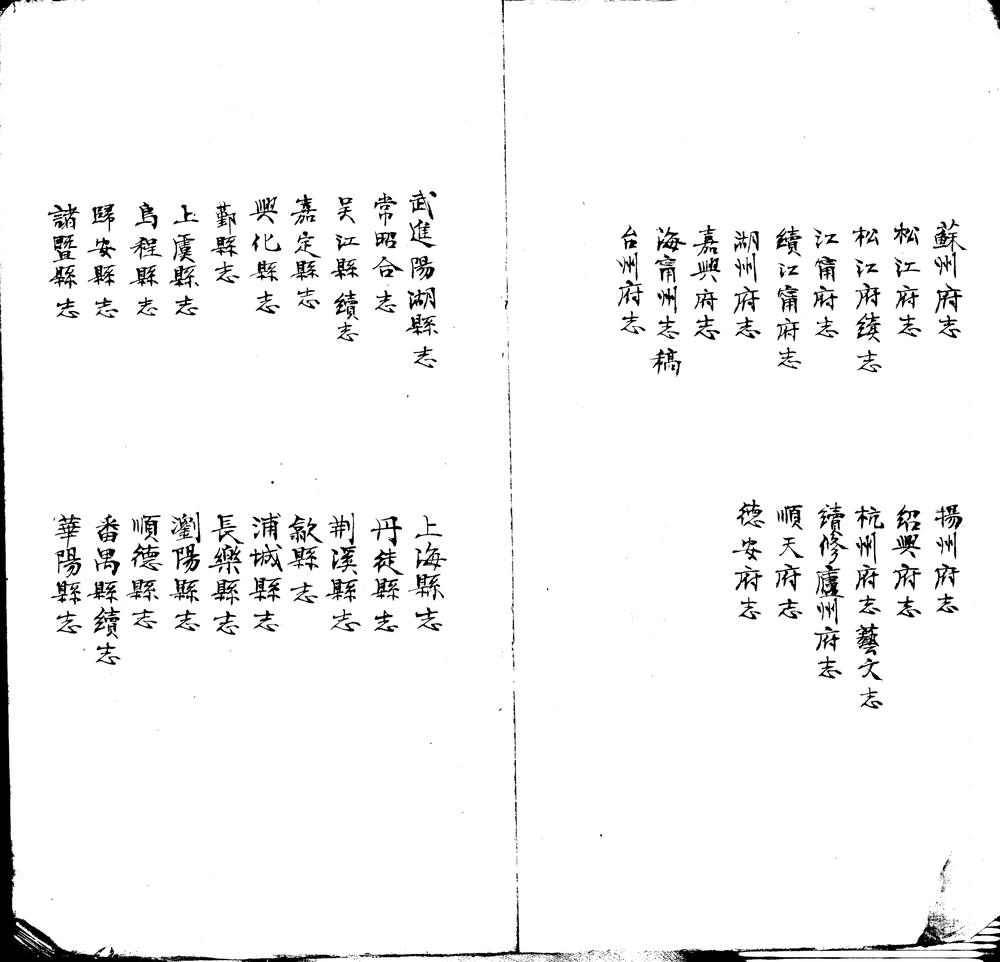 蘇州府志
松江府志
松江府續志
江甯府志
續江甯府志
湖州府志
嘉興府志
海甯州志稿
台州府志
揚州府志
紹興府志
杭州府志藝文志
續修廬州府志
順天府志
德安府志
武進陽湖縣志
常昭合志
吴江縣續志
嘉定縣志
興化縣志
鄞縣志
上虞縣志
烏程縣志
歸安縣志
諸暨縣志
上海縣志
丹徒縣志
荆溪縣志
歙縣志
浦城縣志
長樂縣志
瀏陽縣志
順德縣志
番禺縣續志
華陽縣志